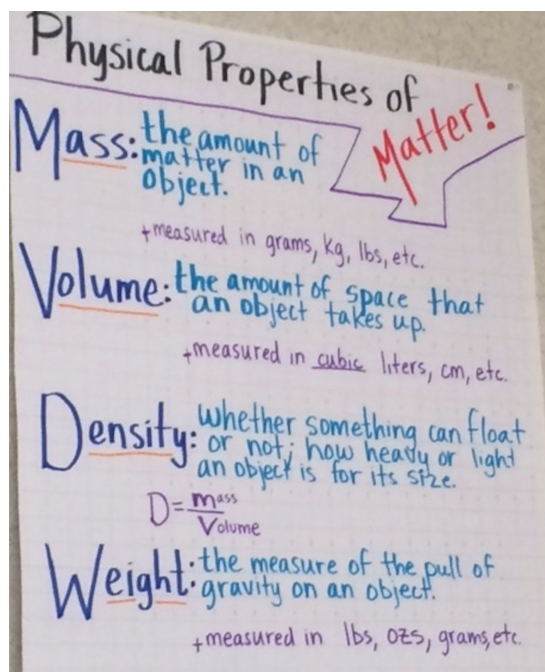 Physical Properties of
Matter!
Mass: the amount of
matter in an
object.
+measured in grams, kg, lbs, etc.
Volume: the amount of space that
an object takes up.
+measured in cubic liters, cm, etc.
Density: whether something can float
or not; how heady or light
an object is for its size.
D = mass
Volume
Weight: the measure of the pull of
gravity on an object.
+measured in lbs, ozs, grams, etc.